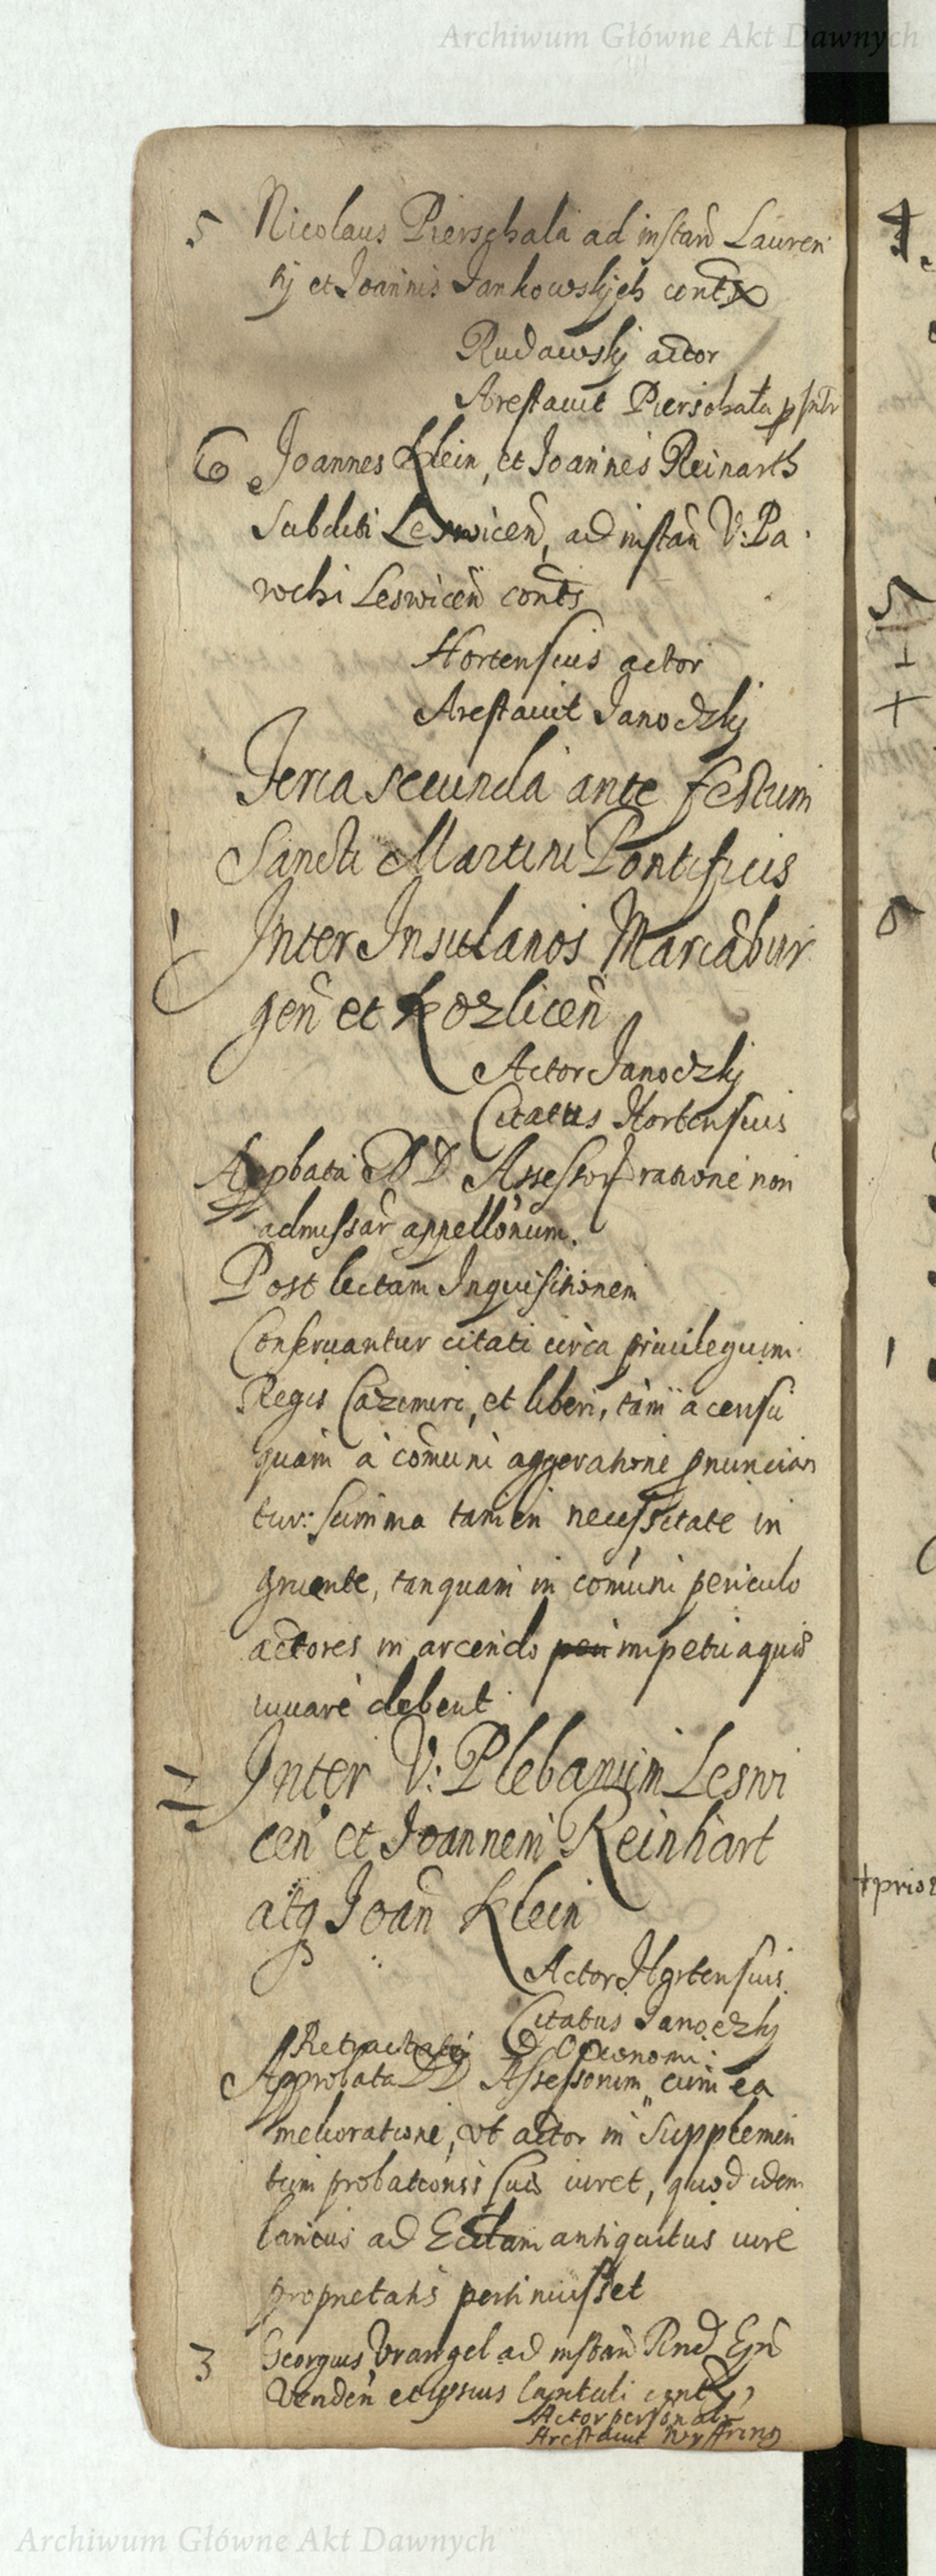 Archiwum Główne Akt Dawnych
5 Nicolaus Pierschala ad instan Lauren
tij et Joannis Jankowskych cont
Rudawsky actor
Arestauit Pierschala
6 Joannes Klein, et Joannes Reinarth
Subditi Leswicen, ad instan V: Pa
rochi Leswicen conts
Hortensius actor
Arestauit Janoczky
Feria secunda ante festum
Sancti Martini Pontificis
1 Inter Insulanos Mariabur
gen et Kozlicen
Actor Janoczky
Citatus Hortensius
Appbata DD Assessor ratione non
admissar appellonum.
Post lectam Inquisitionem
Conseruantur citati circa priuilegium
Regis Cazemiri, et liberi, tam a censu
quam a comuni aggeratione pnuncian
tur: summa tamen necessitate in
gruente, tanquam in comuni periculo
actores in arcendo impetu aquis
iuuare debent
2 Inter V: Plebanum Leswi
cen et Joannem Reinhart
atq Joan Klein
Actor Hortensius
Citatus Janoczky
Retractata D Oeconomi:
Approbata DD Assessorum cum ea
melioratione, vt actor in Supplemen
tum probationis suis iuret, quod idem
laneus ad Ecclam antiquitus iure
proprietatis pertinuisset
3 Georgius Vrangel ad instan Rnd Epi
Venden et ipsius Capituli
Actor personalr
Arestauit
prior
Archiwum Główne Akt Dawnych